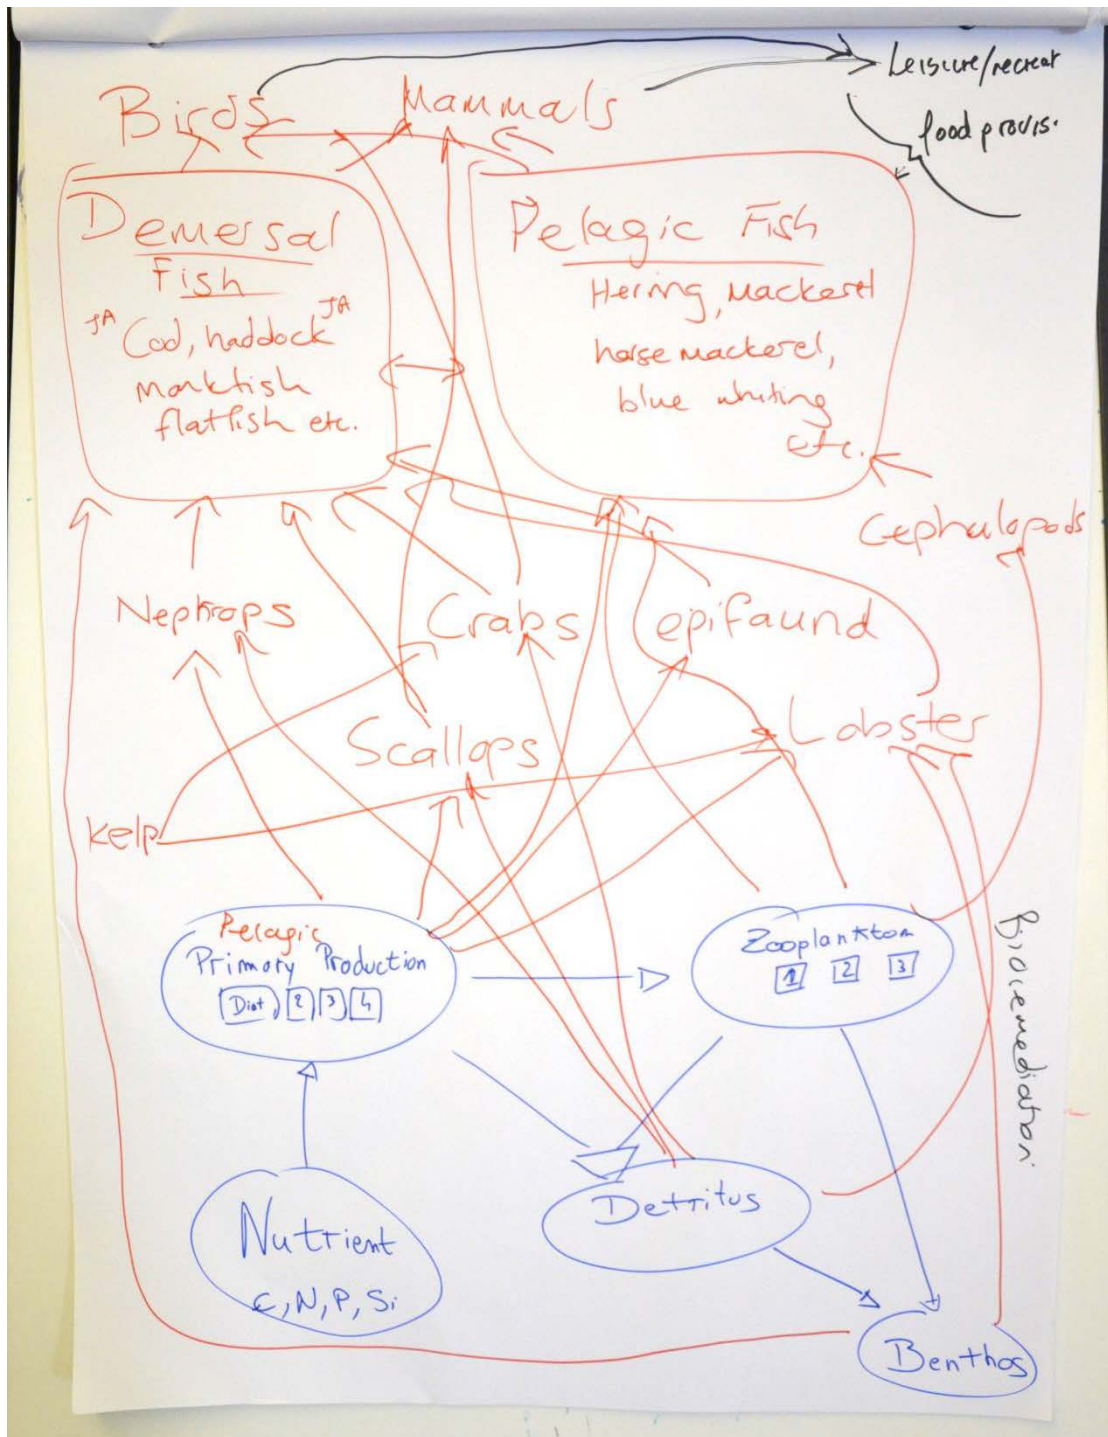 Leisure/recreat
Birds
Mammals
food provis.
Demersal
Fish
JA Cod, haddock JA
monkfish
flatfish etc.
Pelagic Fish
Herring, Mackerel
horse mackerel,
blue whiting
etc.
Cephalopods
Nephrops
Crabs
epifaund
Scallops
Lobster
Kelp
Pelagic
Primary Production
Diat 2 3 4
Zooplankton
1 2 3
Bioremediation
Nutrient
C, N, P, Si
Detritus
Benthos